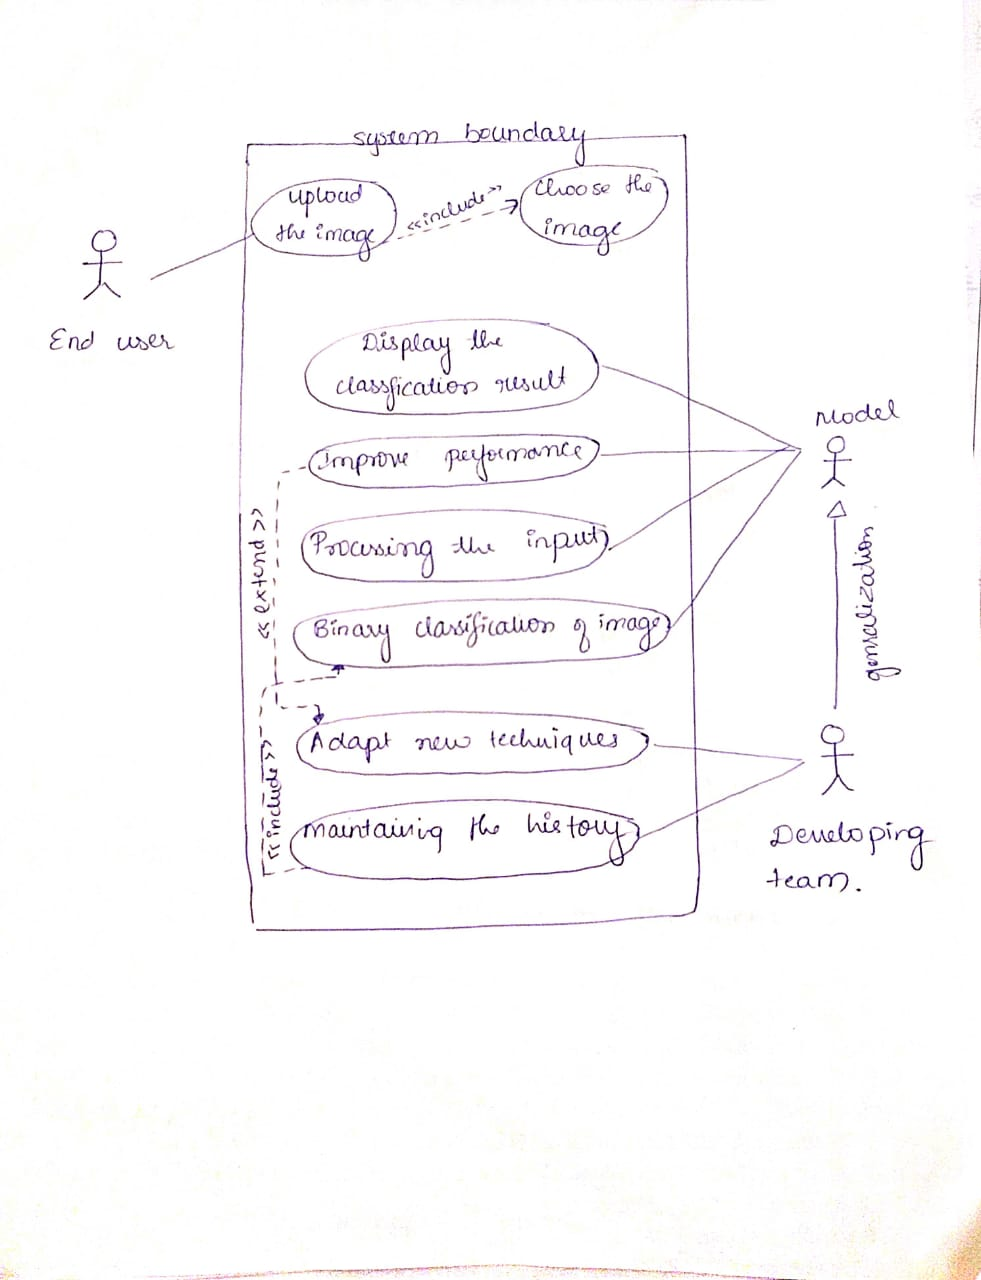 system boundary
upload
the image
<<include>>
Choose the
image
End user
Display the
classfication result
Model
Improve performance
<<extend>>
Processing the input
genralization
Binary classification of image
Adapt new techniques
<<include>>
maintaining the history
Developing
team.